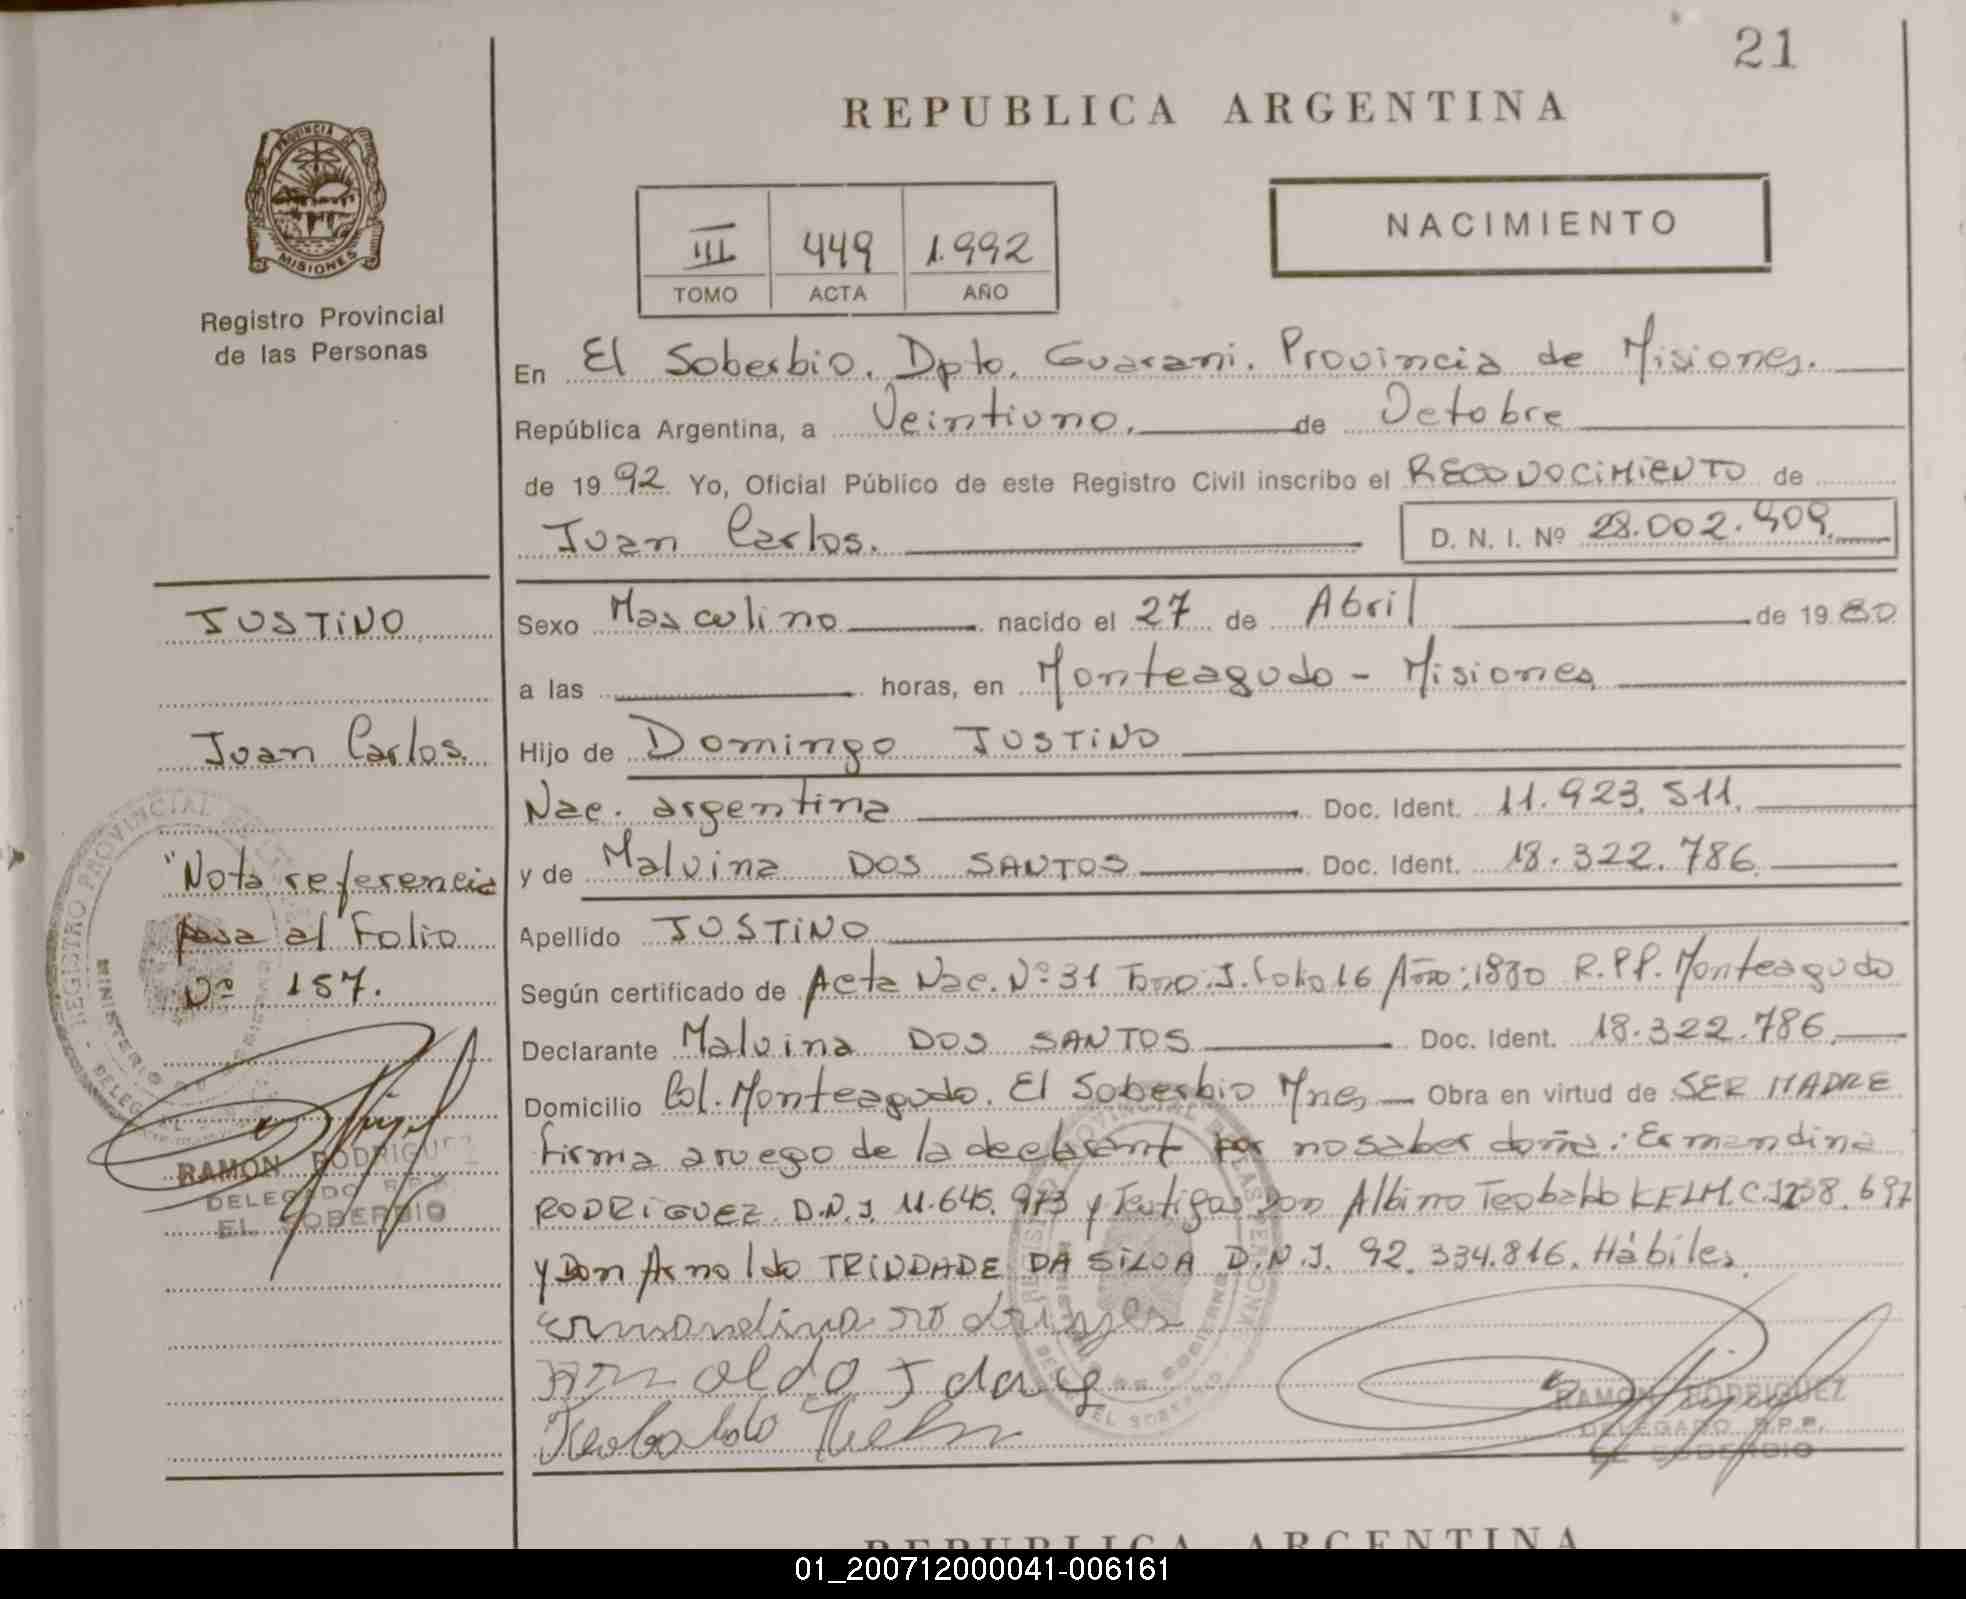 21
REPUBLICA ARGENTINA
PROVINCIA DE MISIONES
Registro Provincial
de las Personas
III 449 1.992
TOMO ACTA AÑO
NACIMIENTO
En El Soberbio. Dpto. Guarani. Provincia de Misiones.
República Argentina, a Veintiuno. de Octobre
de 1992 Yo, Oficial Público de este Registro Civil inscribo el RECONOCIMIENTO de
Juan Carlos. D. N. I. Nº 28.002.409.
JUSTINO
Juan Carlos.
"Nota referencia
pasa al Folio
Nº 157.
RAMON RODRIGUEZ
DELEGADO R.P.P.
EL SOBERBIO
Sexo Masculino nacido el 27 de Abril de 1980
a las horas, en Monteagudo - Misiones
Hijo de Domingo JUSTINO
Nac. argentina Doc. Ident. 11.923.511.
y de Malvina DOS SANTOS Doc. Ident. 18.322.786.
Apellido JUSTINO
Según certificado de Acta Nac. Nº 31 Tomo: I. Folio 16 Año: 1980 R.P.P. Monteagudo
Declarante Malvina DOS SANTOS Doc. Ident. 18.322.786.
Domicilio Col. Monteagudo. El Soberbio Mnes Obra en virtud de SER MADRE
Firma a ruego de la declarant por no saber doña: Ermandina
RODRIGUEZ D.N.I. 11.645.973 y Testigos Don Albino Teobaldo KELM. C.I. 697
y Don Arnoldo TRINDADE DA SILVA D.N.I. 92.334.816. Hábiles
ermandina rodriges
Teobaldo Kelm
RAMON RODRIGUEZ
DELEGADO R.P.P.
EL SOBERBIO
REPUBLICA ARGENTINA
01_200712000041-006161